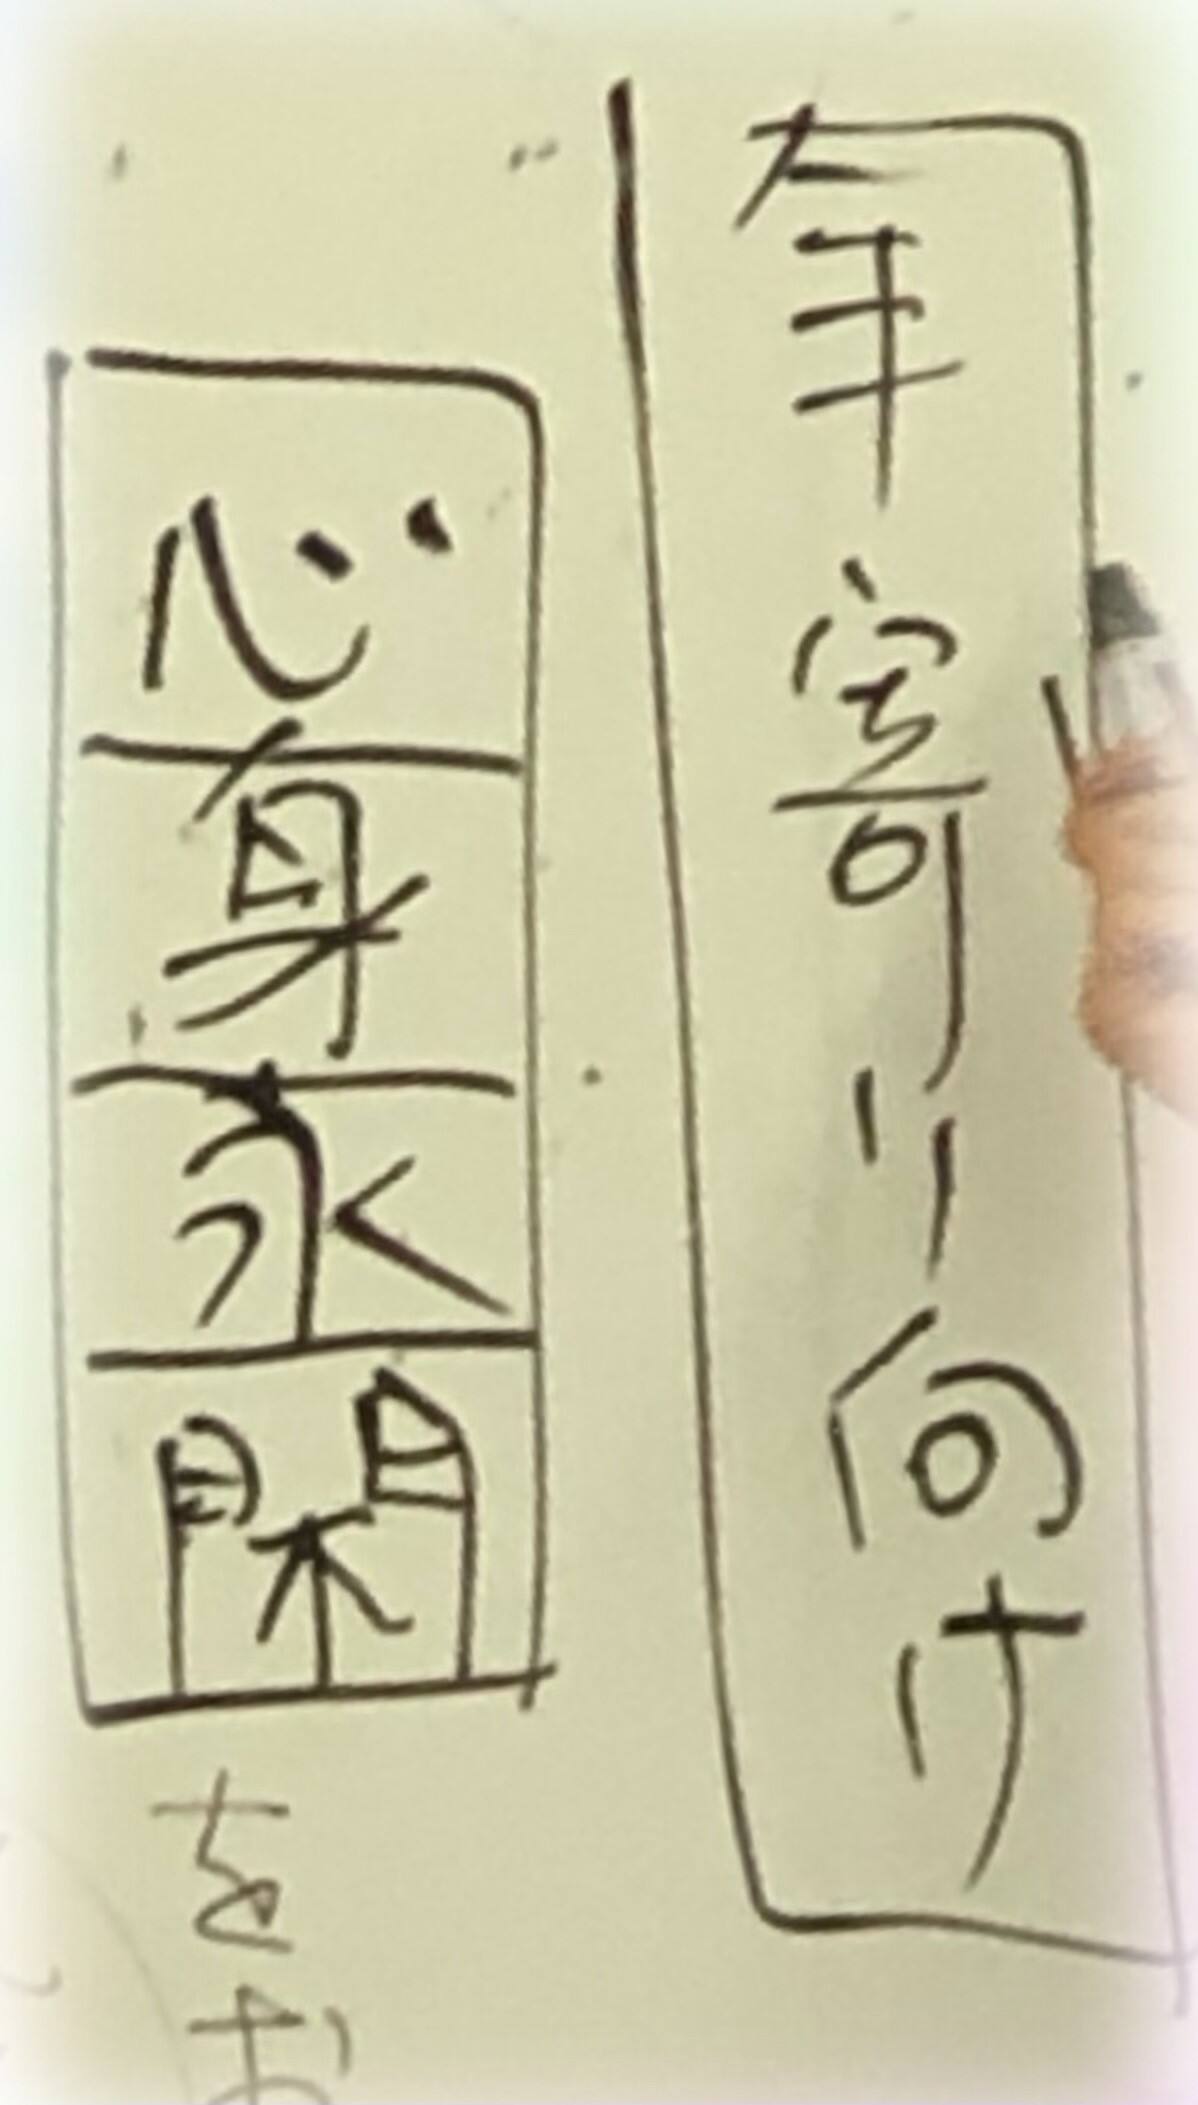 年寄り向け
心身永閑
をお